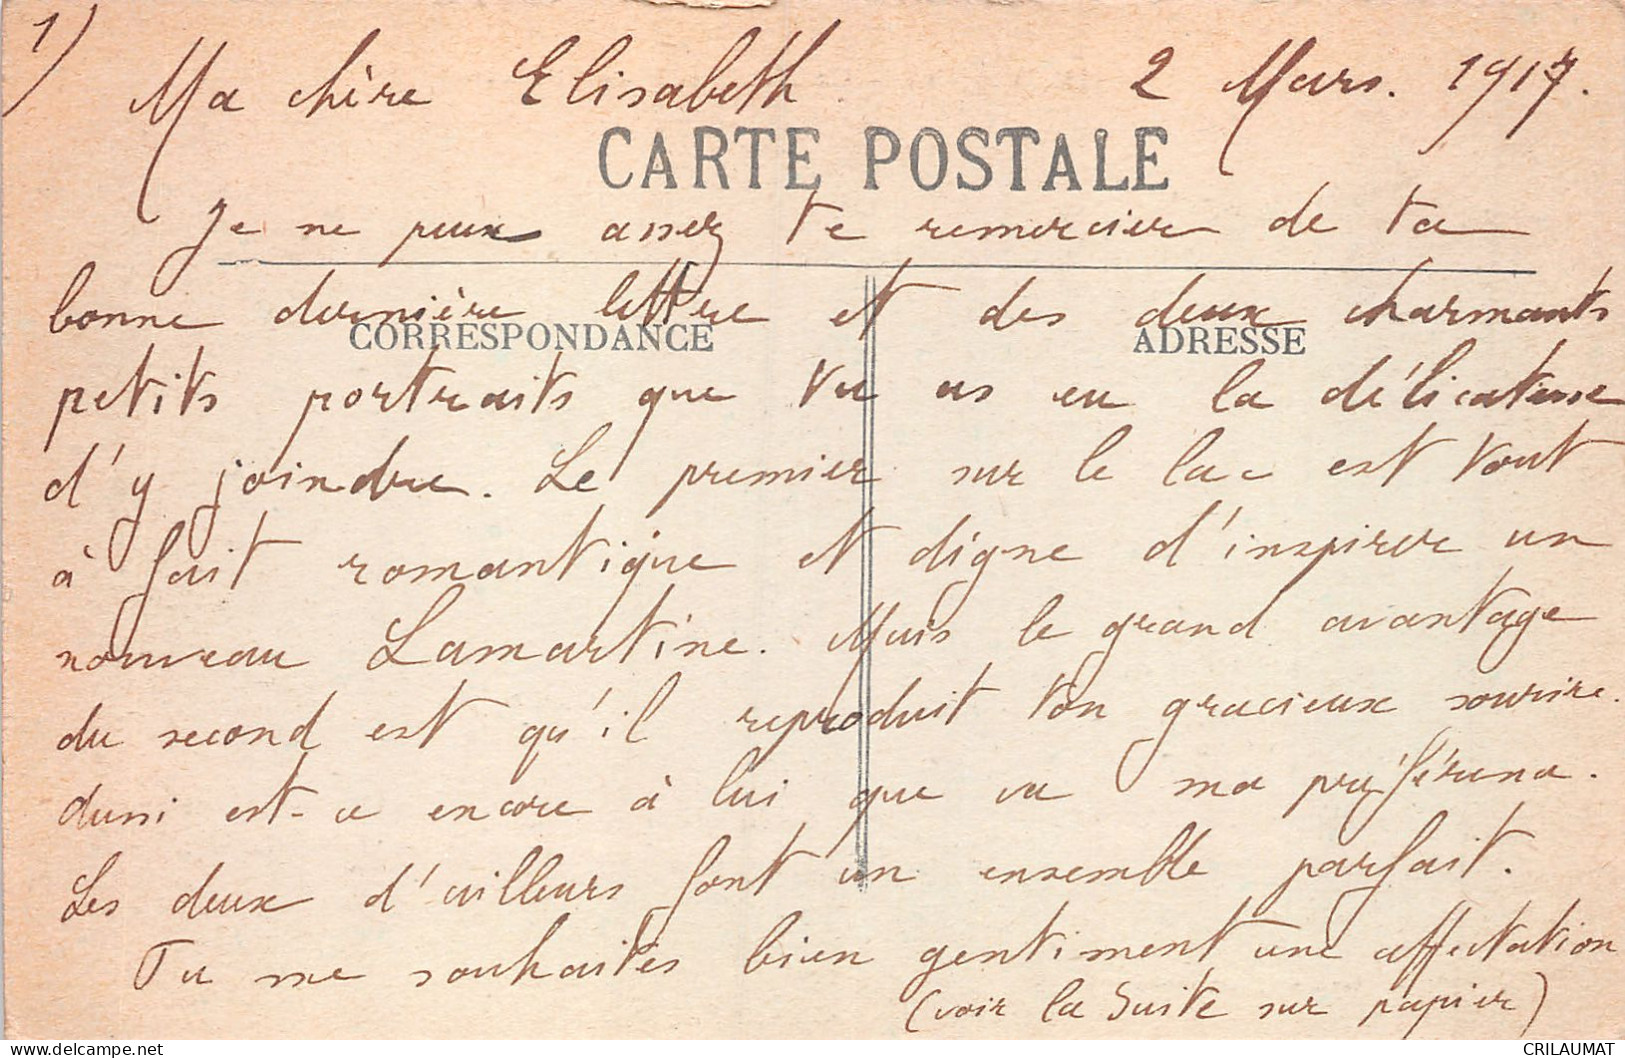 1)
Ma chère Elisabeth 2 Mars. 1917.
CARTE POSTALE
Je ne peux assez te remercier de ta
bonne dernière lettre et des deux charmants
CORRESPONDANCE ADRESSE
petits portraits que tu as eu la délicatesse
d'y joindre. Le premier sur le lac est tout
à fait romantique et digne d'inspirer un
nouveau Lamartine. Mais le grand avantage
du second est qu'il reproduit ton gracieux sourire.
Aussi est-ce encore à lui que va ma préférence.
Les deux d'ailleurs font un ensemble parfait.
Tu me souhaites bien gentiment une affectation
(voir la suite sur papier)
CRILAUMAT